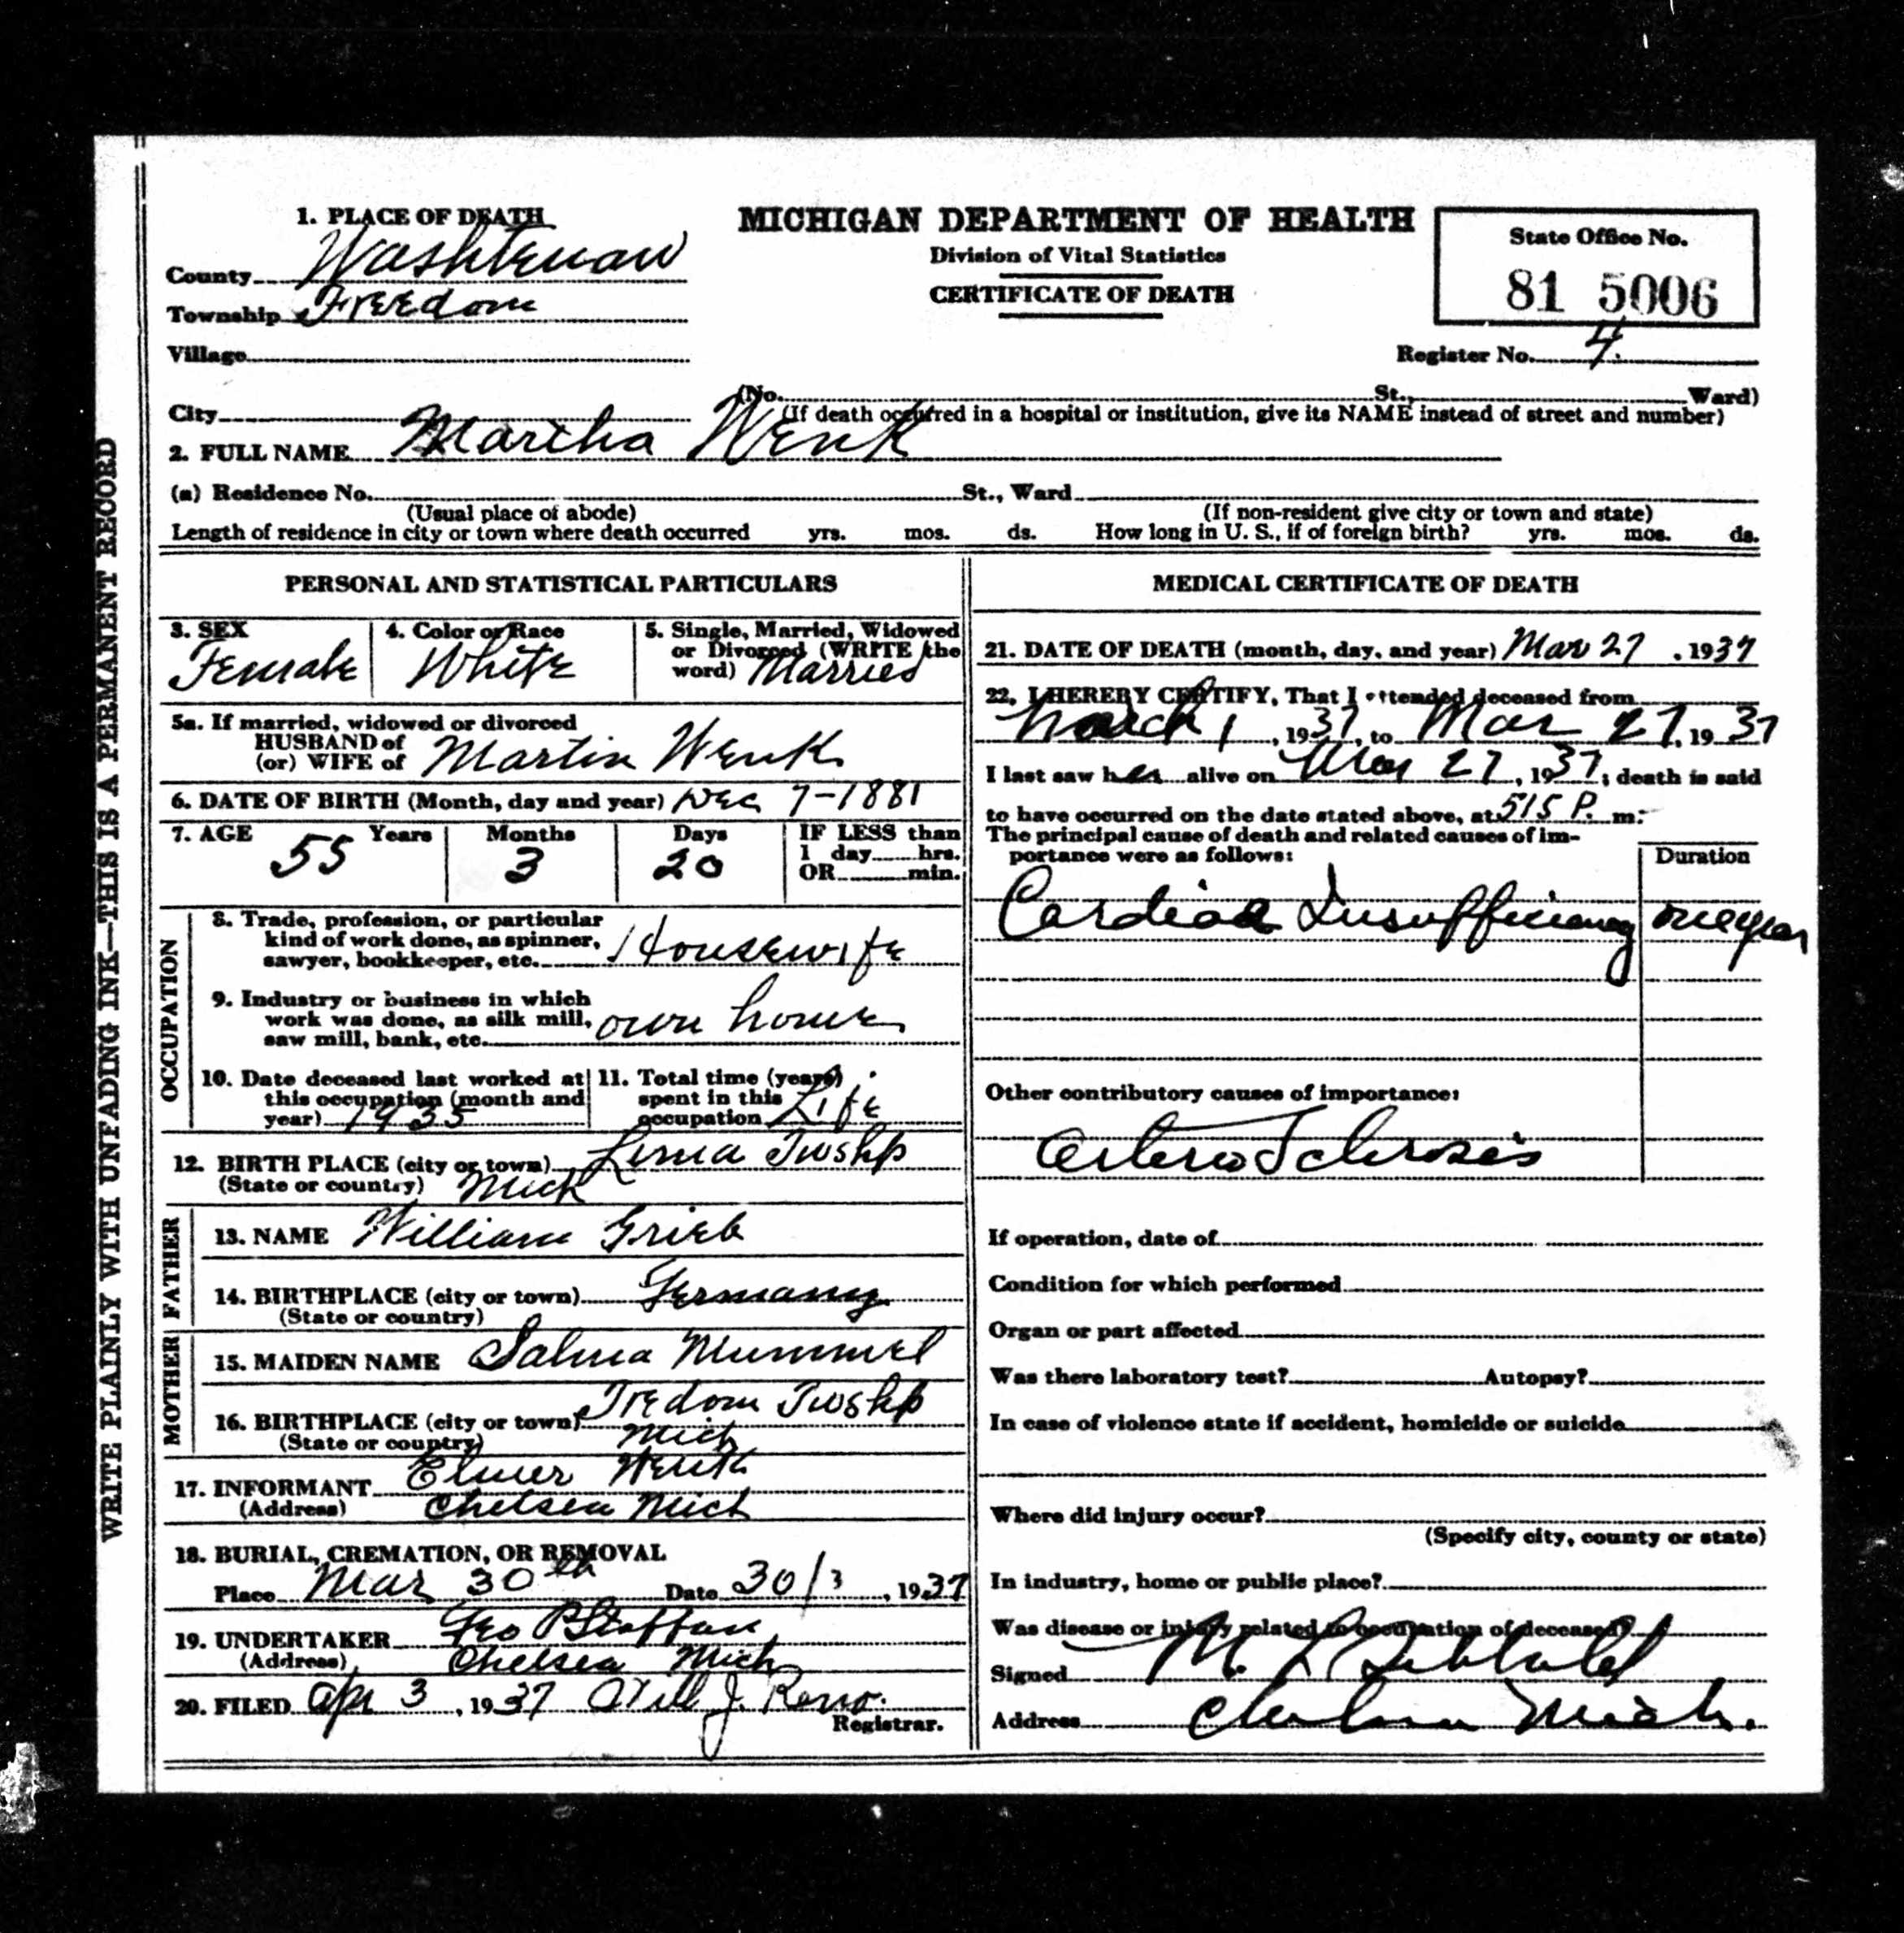 1. PLACE OF DEATH
County Washtenaw
Township Freedom
Village
City
MICHIGAN DEPARTMENT OF HEALTH
Division of Vital Statistics
CERTIFICATE OF DEATH
State Office No.
81 5006
Register No. 4.
(No. St., Ward)
(If death occurred in a hospital or institution, give its NAME instead of street and number)
2. FULL NAME Martha Wenk
(a) Residence No. St., Ward
(Usual place of abode) (If non-resident give city or town and state)
Length of residence in city or town where death occurred yrs. mos. ds. How long in U. S., if of foreign birth? yrs. mos. ds.
WRITE PLAINLY WITH UNFADING INK—THIS IS A PERMANENT RECORD
PERSONAL AND STATISTICAL PARTICULARS
3. SEX
Female
4. Color or Race
White
5. Single, Married, Widowed
or Divorced (WRITE the
word) Married
5a. If married, widowed or divorced
HUSBAND of
(or) WIFE of Martin Wenk
6. DATE OF BIRTH (Month, day and year) Dec 7-1881
7. AGE 55 Years
Months 3
Days 20
IF LESS than
1 day hrs.
OR min.
OCCUPATION
8. Trade, profession, or particular
kind of work done, as spinner,
sawyer, bookkeeper, etc. Housewife
9. Industry or business in which
work was done, as silk mill,
saw mill, bank, etc. own home
10. Date deceased last worked at
this occupation (month and
year) 1935
11. Total time (years)
spent in this
occupation Life
12. BIRTH PLACE (city or town) Lima Twshp
(State or country) Mich
FATHER
13. NAME William Grieb
14. BIRTHPLACE (city or town) Germany
(State or country)
MOTHER
15. MAIDEN NAME Salma Mummel
16. BIRTHPLACE (city or town) Fredom Twshp
(State or country) Mich
17. INFORMANT Elmer Wenk
(Address) Chelsea Mich
18. BURIAL, CREMATION, OR REMOVAL
Place Mar 30th Date 30/3, 1937
19. UNDERTAKER Geo P Staffan
(Address) Chelsea Mich
20. FILED Apr 3, 1937 Will J. Reno.
Registrar.
MEDICAL CERTIFICATE OF DEATH
21. DATE OF DEATH (month, day, and year) Mar 27, 1937
22. I HEREBY CERTIFY, That I attended deceased from
March 1, 1937, to Mar 27, 1937
I last saw her alive on Mar 27, 1937; death is said
to have occurred on the date stated above, at 515 P. m.
The principal cause of death and related causes of im-
portance were as follows:
Duration
Cardiac Insufficiency one year
Other contributory causes of importance:
Arterio Sclerosis
If operation, date of
Condition for which performed
Organ or part affected
Was there laboratory test? Autopsy?
In case of violence state if accident, homicide or suicide
Where did injury occur?
(Specify city, county or state)
In industry, home or public place?
Was disease or injury related to occupation of deceased?
Signed M.
Address Chelsea Mich.